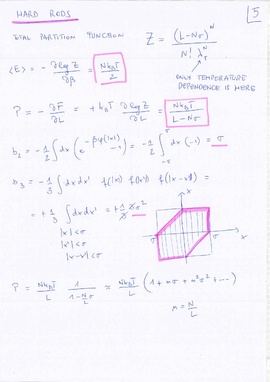 HARD RODS
5
TOTAL PARTITION FUNCTION Z = (L-Nσ)^N / N! λ_T^N
<E> = - ∂log Z / ∂β = Nk_BT / 2
ONLY TEMPERATURE
DEPENDENCE IS HERE
P = - ∂F/∂L = + k_BT ∂log Z / ∂L = Nk_BT / L-Nσ
b_2 = - 1/2 ∫dx (e^{-βφ(|x|)} -1) = - 1/2 ∫_{-σ}^{σ} dx (-1) = σ
b_3 = - 1/3 ∫dxdx' f(|x|) f(|x'|) f(|x-x'|) =
= + 1/3 ∫dxdx' = + 1/3 3σ²
|x|<σ
|x'|<σ
|x-x'|<σ
x'
σ
σ
x
P = Nk_BT/L 1/(1-N/L σ) ≈ Nk_BT/L (1 + nσ + n²σ² + ---)
n = N/L